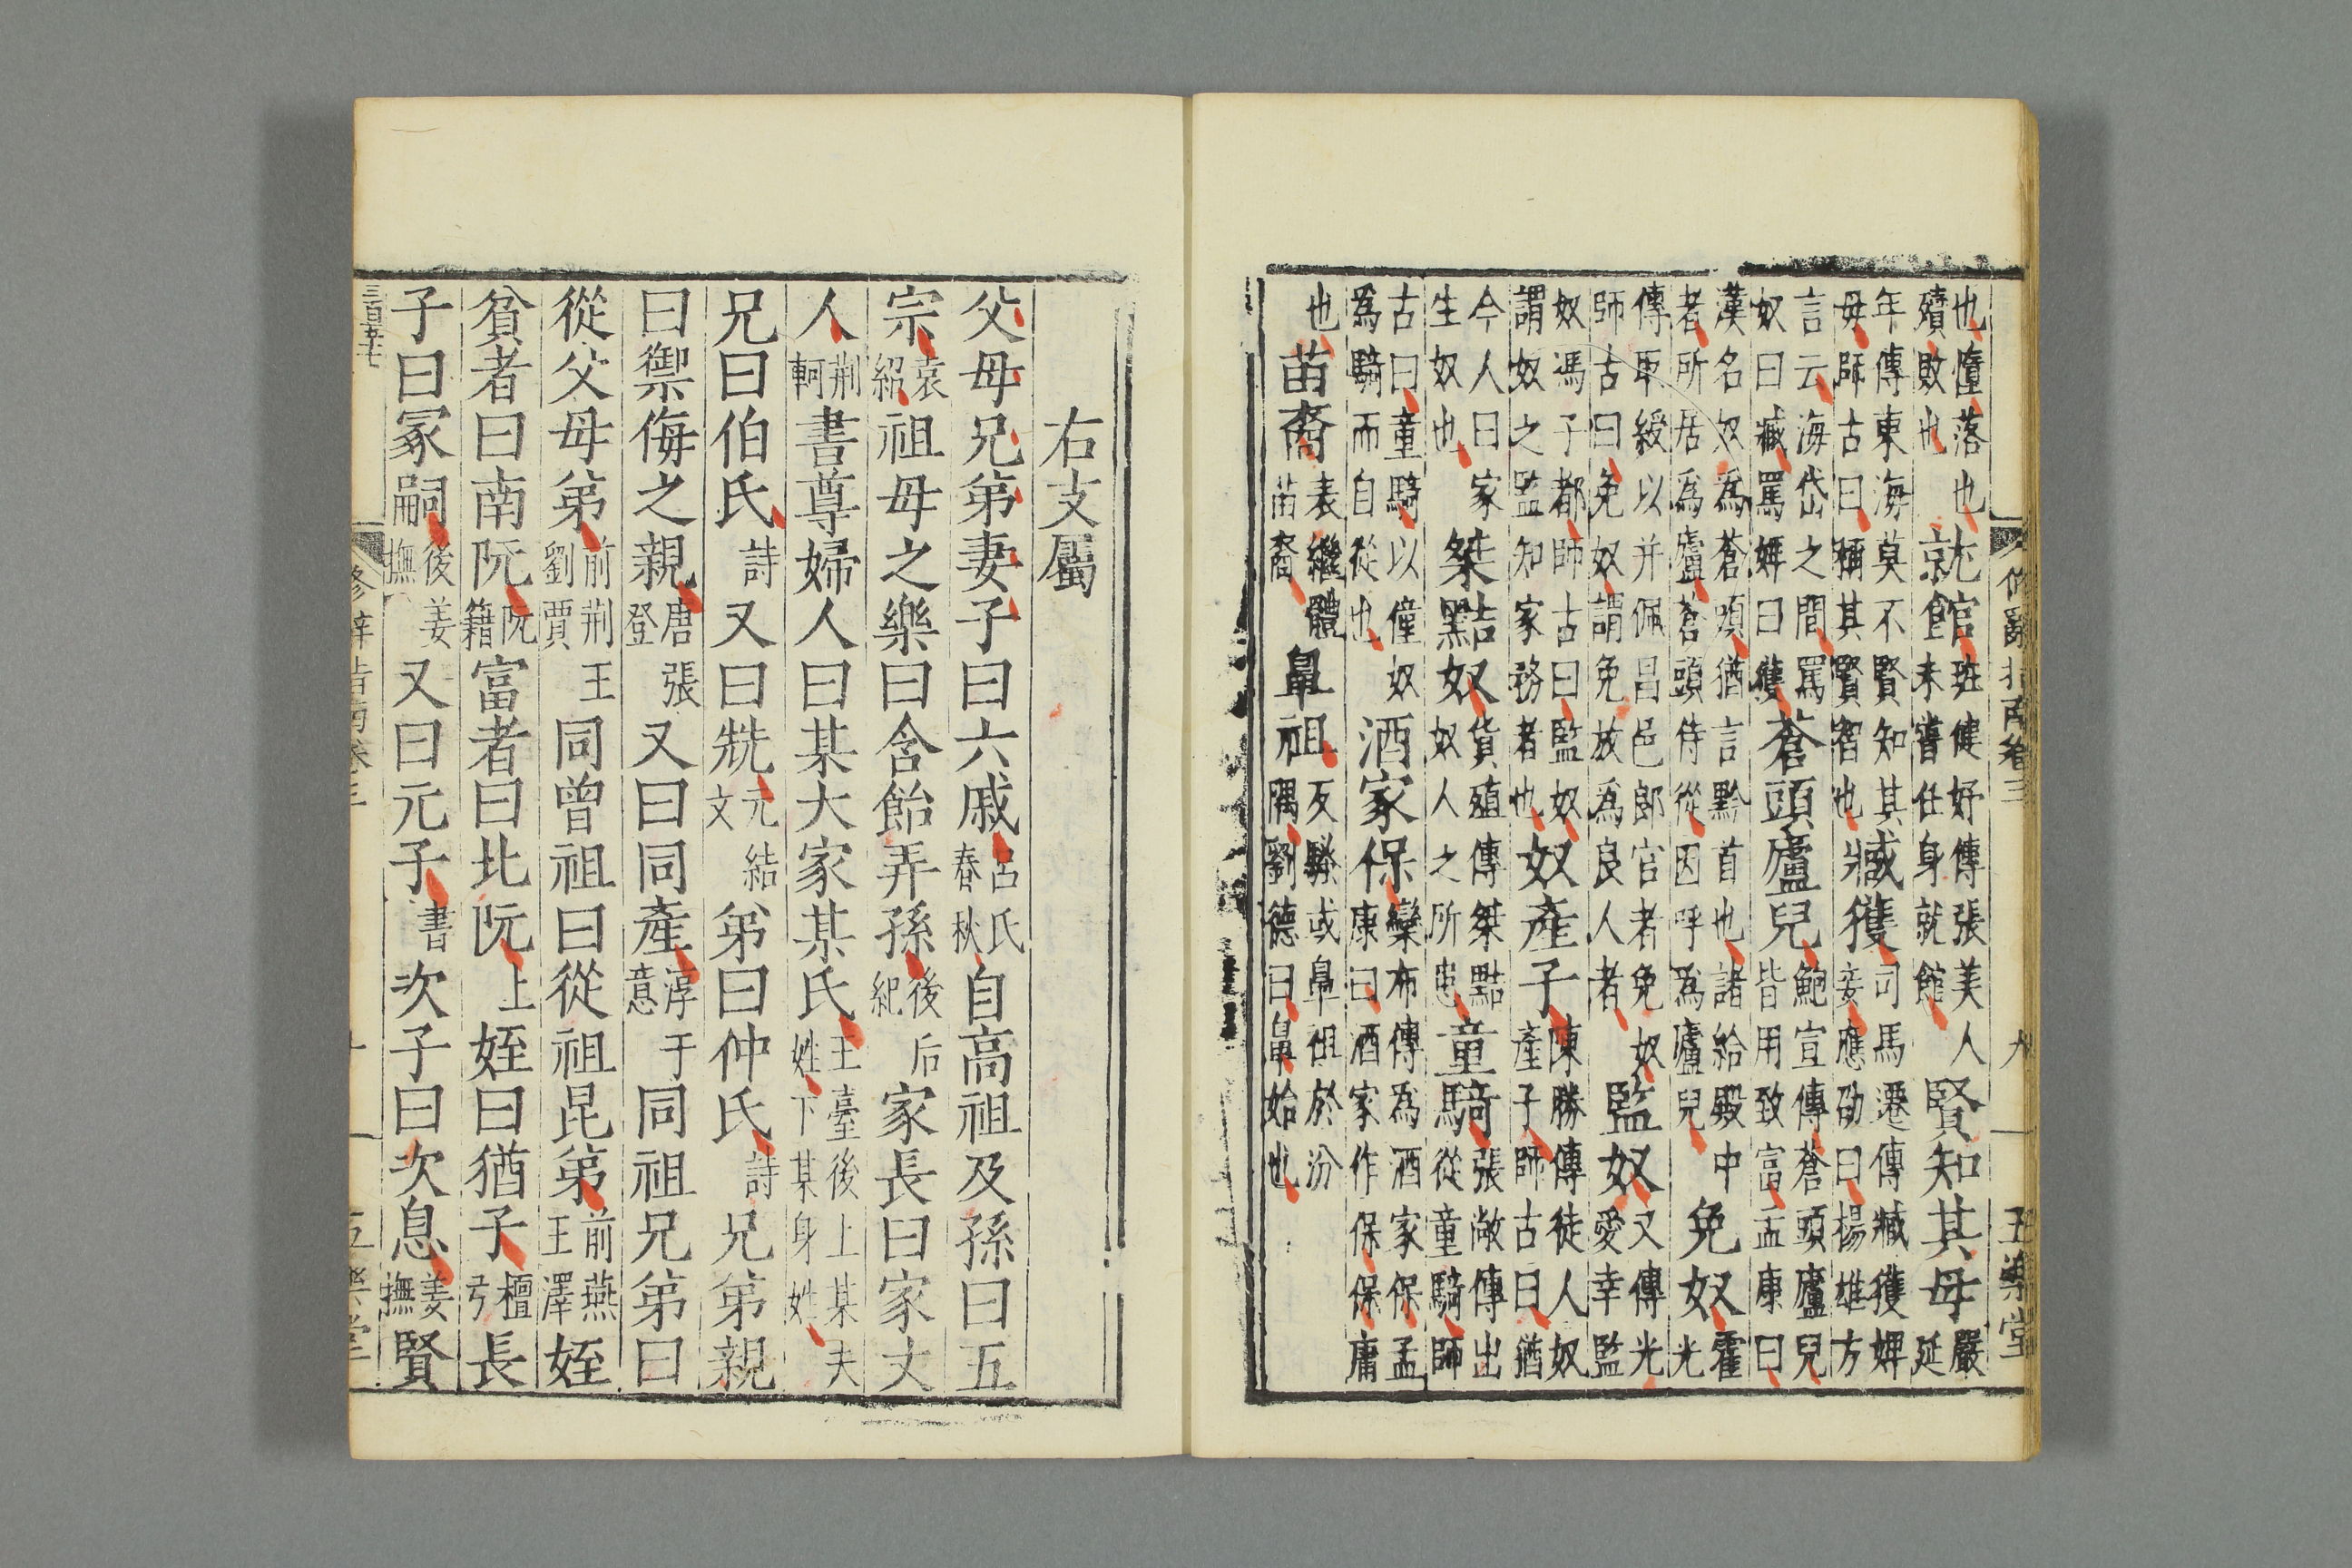 修辭指南卷三 九 五樂堂
也墮落也殰敗也就館班倢伃傳張美人未嘗任身就館賢知其母嚴延
年傳東海莫不賢知其母師古曰稱其賢智也臧獲司馬遷傳臧獲婢妾應劭曰揚雄方
言云海岱之間罵奴曰臧罵婢曰獲蒼頭廬兒鮑宣傳蒼頭廬兒皆用致富孟康曰
漢名奴爲蒼頭猶言黔首也諸給殿中者所居爲廬蒼頭侍從因呼爲廬兒免奴霍光
傳取綬以并佩昌邑郎官者免奴師古曰免奴謂免放爲良人者監奴又傳光愛幸監
奴馮子都師古曰監奴謂奴之監知家務者也奴產子陳勝傳徒人奴產子師古曰猶
今人曰家生奴也桀黠奴貨殖傳桀黠奴人之所患童騎張敞傳出從童騎師
古曰童騎以僮奴爲騎而自從也酒家保欒布傳為酒家保孟康曰酒家作保保庸
也苗裔表繼體苗裔鼻祖反騷或鼻祖於汾隅劉德曰鼻始也
右支屬
父母兄弟妻子曰六戚呂氏春秋自高祖及孫曰五
宗袁紹祖母之樂曰含飴弄孫後后紀家長曰家丈
人荆軻書尊婦人曰某大家某氏王臺後上某夫姓下某身姓
兄曰伯氏詩又曰元結文弟曰仲氏詩兄弟親
曰禦侮之親唐張登又曰同產淳于意同祖兄弟曰
從父母弟前荆王劉賈同曾祖曰從祖昆弟前燕王澤姪
貧者曰南阮阮籍富者曰北阮上姪曰猶子檀弓長
子曰冢嗣後姜撫又曰元子書次子曰次息姜撫賢
三百五十七
修辭指南卷三 十 五樂堂